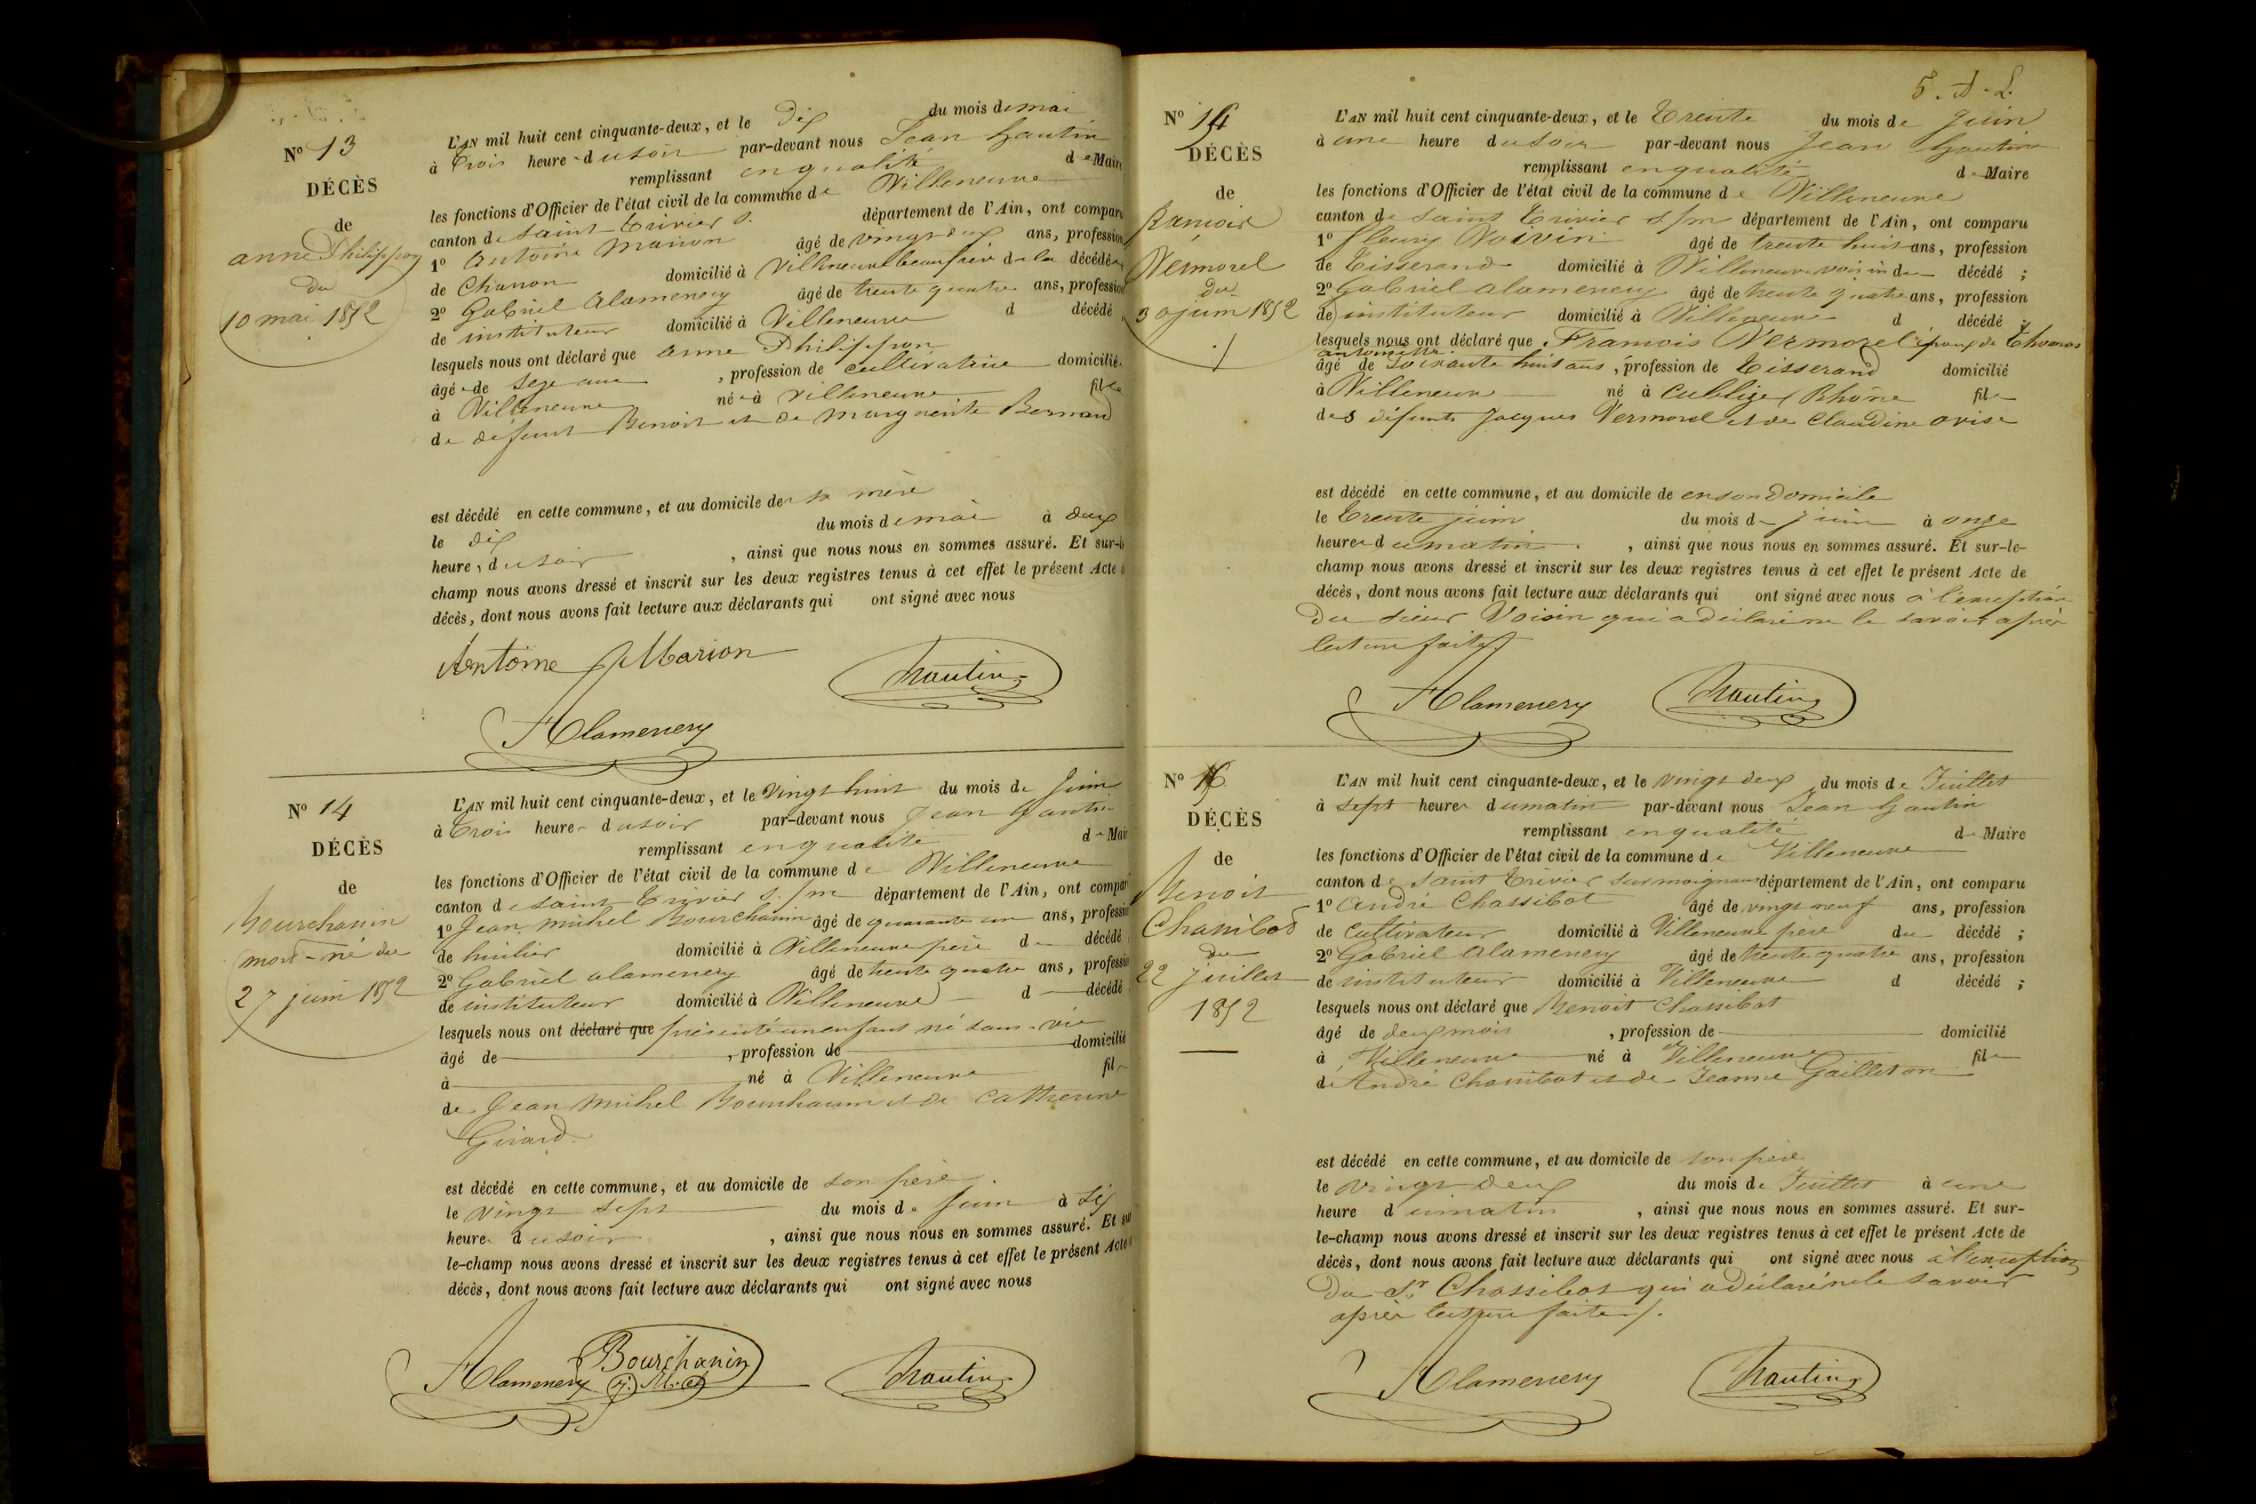 Nº 13
DÉCÈS
de
anne Philippon
du
10 mai 1852
L'AN mil huit cent cinquante-deux, et le Dix du mois de mai
à trois heures du soir par-devant nous Jean
remplissant en qualité de Maire
les fonctions d'Officier de l'état civil de la commune de Villeneuve
canton de saint Trivier s. département de l'Ain, ont comparu
1º antoine marion âgé de vingt deux ans, profession
de Charron domicilié à Villeneuve beau frère de la décédée
2º Gabriel alamenery âgé de trente quatre ans, profession
de instituteur domicilié à Villeneuve d décédé
lesquels nous ont déclaré que anne Philippon
âgée de seze ans, profession de cultivatrice domiciliée
à Villeneuve née à villeneuve fille
de défunt Benoit et de marguerite Bernard
est décédé en cette commune, et au domicile de sa mère
le dix du mois de mai à deux
heures du soir, ainsi que nous nous en sommes assuré. Et sur-le
champ nous avons dressé et inscrit sur les deux registres tenus à cet effet le présent Acte
décès, dont nous avons fait lecture aux déclarants qui ont signé avec nous
Antoine Marion
Alamenery
Nº 14
DÉCÈS
de
Bourchanin
mort-né du
27 juin 1852
L'AN mil huit cent cinquante-deux, et le vingt huit du mois de Juin
à trois heures du soir par-devant nous Jean
remplissant en qualité de Maire
les fonctions d'Officier de l'état civil de la commune de Villeneuve
canton de saint Trivier s. /m département de l'Ain, ont comparu
1º Jean michel Bourchanin âgé de quarante un ans, profession
de huilier domicilié à Villeneuve père d décédé
2º Gabriel alamenery âgé de trente quatre ans, profession
de instituteur domicilié à Villeneuve d décédé
lesquels nous ont déclaré que présenté un enfant né sans vie
âgé de , profession de domicilié
à né à Villeneuve fils
de Jean michel Bourchanin et de Catherine
Girard
est décédé en cette commune, et au domicile de son père
le vingt sept du mois de Juin à six
heures du soir, ainsi que nous nous en sommes assuré. Et sur
le-champ nous avons dressé et inscrit sur les deux registres tenus à cet effet le présent Acte
décès, dont nous avons fait lecture aux déclarants qui ont signé avec nous
Bourchanin
Alamenery j. M.
5.
Nº 15
DÉCÈS
de
Vermorel
du
30 juin 1852
L'AN mil huit cent cinquante-deux, et le Trente du mois de Juin
à une heure du soir par-devant nous Jean
remplissant en qualité de Maire
les fonctions d'Officier de l'état civil de la commune de Villeneuve
canton de saint Trivier s/m département de l'Ain, ont comparu
1º fleury Voisin âgé de trente huit ans, profession
de Tisserand domicilié à Villeneuve voisin du décédé ;
2º Gabriel alamenery âgé de trente quatre ans, profession
de instituteur domicilié à Villeneuve d décédé ;
lesquels nous ont déclaré que François Vermorel époux de Thomas
antoinette
âgé de soixante huit ans, profession de Tisserand domicilié
à Villeneuve né à Cublize Rhône fils
des défunts Jacques Vermorel et de Claudine ovise
est décédé en cette commune, et au domicile de en son domicile
le Trente juin du mois de juin à onze
heures du matin, ainsi que nous nous en sommes assuré. Et sur-le-
champ nous avons dressé et inscrit sur les deux registres tenus à cet effet le présent Acte de
décès, dont nous avons fait lecture aux déclarants qui ont signé avec nous à l'exception
Du sieur Voisin qui a déclaré ne le savoir après
lecture faite
Alamenery
Nº
DÉCÈS
de
Benoit
Chassibot
du
22 juillet
1852
L'AN mil huit cent cinquante-deux, et le vingt deux du mois de Juillet
à sept heures du matin par-devant nous Jean
remplissant en qualité de Maire
les fonctions d'Officier de l'état civil de la commune de Villeneuve
canton de saint Trivier sur moignans département de l'Ain, ont comparu
1º André Chassibot âgé de vingt neuf ans, profession
de Cultivateur domicilié à Villeneuve père du décédé ;
2º Gabriel Alamenery âgé de trente quatre ans, profession
de instituteur domicilié à Villeneuve d décédé ;
lesquels nous ont déclaré que Benoit Chassibot
âgé de deux mois, profession de domicilié
à Villeneuve né à Villeneuve fils
de André Chassibot et de Jeanne Gailleton
est décédé en cette commune, et au domicile de son père
le vingt deux du mois de Juillet à une
heure du matin, ainsi que nous nous en sommes assuré. Et sur-
le-champ nous avons dressé et inscrit sur les deux registres tenus à cet effet le présent Acte de
décès, dont nous avons fait lecture aux déclarants qui ont signé avec nous à l'exception
Du Sr Chassibot qui a déclaré ne le savoir
après lecture faite /.
Alamenery